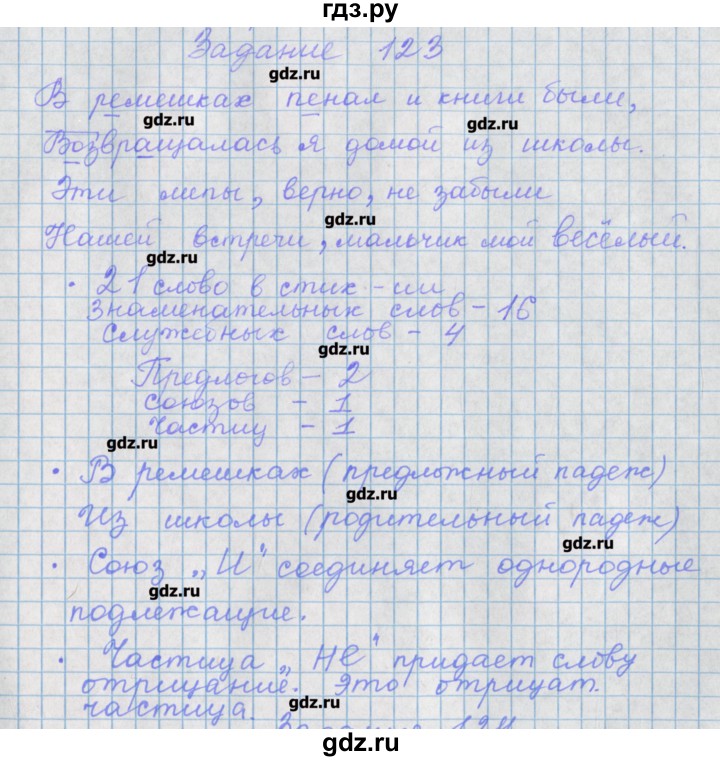 гдз.ру
Задание 123
gdz.ru
В ремешках пенал и книги были,
gdz.ru
gdz.ru
Возвращалась я домой из школы.
Эти липы, верно, не забыли
gdz.ru
Нашей встречи, мальчик мой весёлый.
gdz.ru
• 21 слово в стих-ии
знаменательных слов - 16
служебных слов - 4
gdz.ru
Предлогов - 2
союзов - 1
частиц - 1
gdz.ru
• В ремешках (предложный падеж)
gdz.ru
Из школы (родительный падеж)
gdz.ru
• Союз „И" соединяет однородные
gdz.ru
подлежащие.
• Частица „НЕ" придает слову
отрицание. Это отрицат.
gdz.ru
частица.
gdz.ru